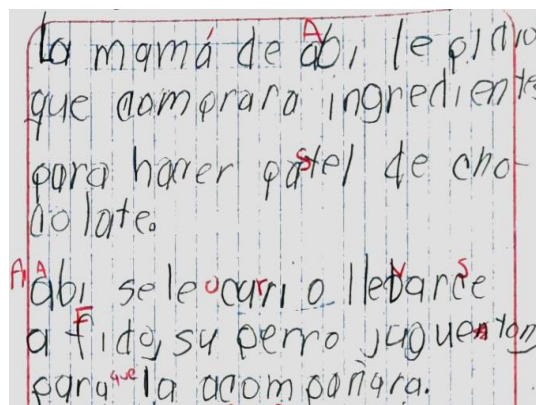 La mamá de Abi le pidio
que comprara ingredientes
para hacer pastel de cho-
colate.
Abi se le ocurrio llevarse
a Fido, su perro jugueton,
para que la acompañara.